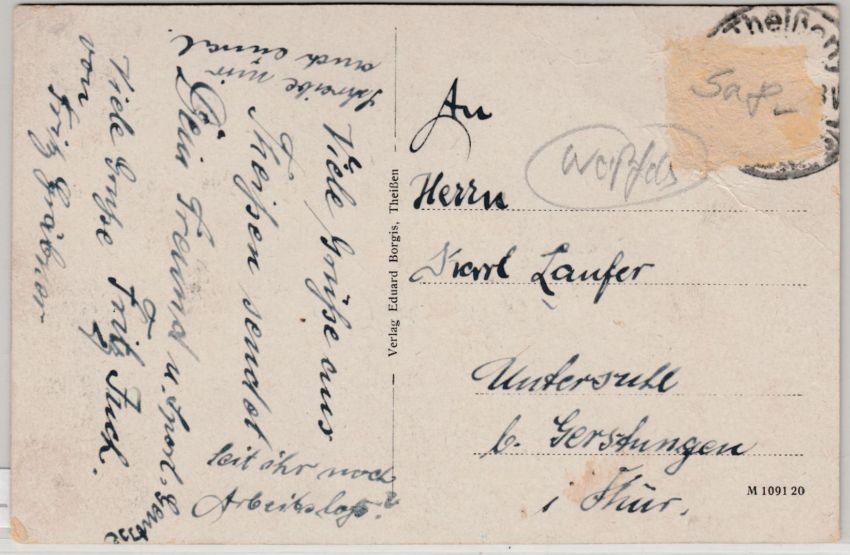 Schreibe mir
auch einmal
Viele Grüße aus
Theißen sendet
Dein Freund u. Sport-
Fritz Fuch.
Viele Grüße
von
Fritz Gräbner
Seit ihr noch
Arbeitslos?
Verlag Eduard Borgis, Theißen
Theißen
An
Herrn
Karl Laufer
Untersuhl
b. Gerstungen
i Thür.
M 1091 20